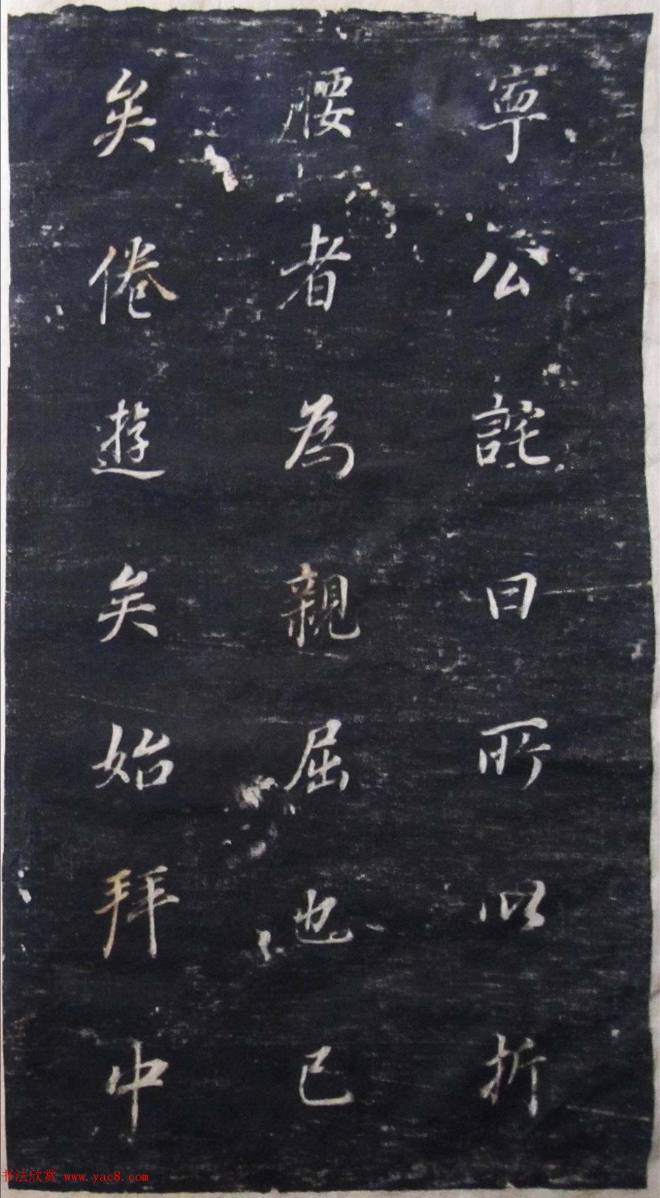 寧公詫曰所以折
腰者為親屈也已
矣倦遊矣始拜中
书法欣赏 www.yac8.com